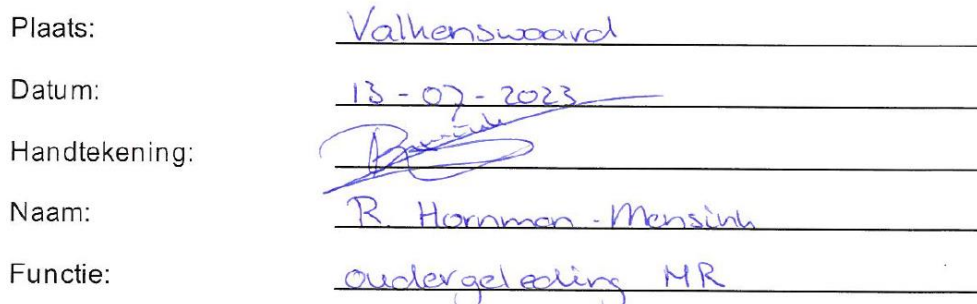 Plaats: Valkenswaard
Datum: 13-07-2023
Handtekening:
Naam: R. Hornman-Mensink
Functie: oudergeleding MR